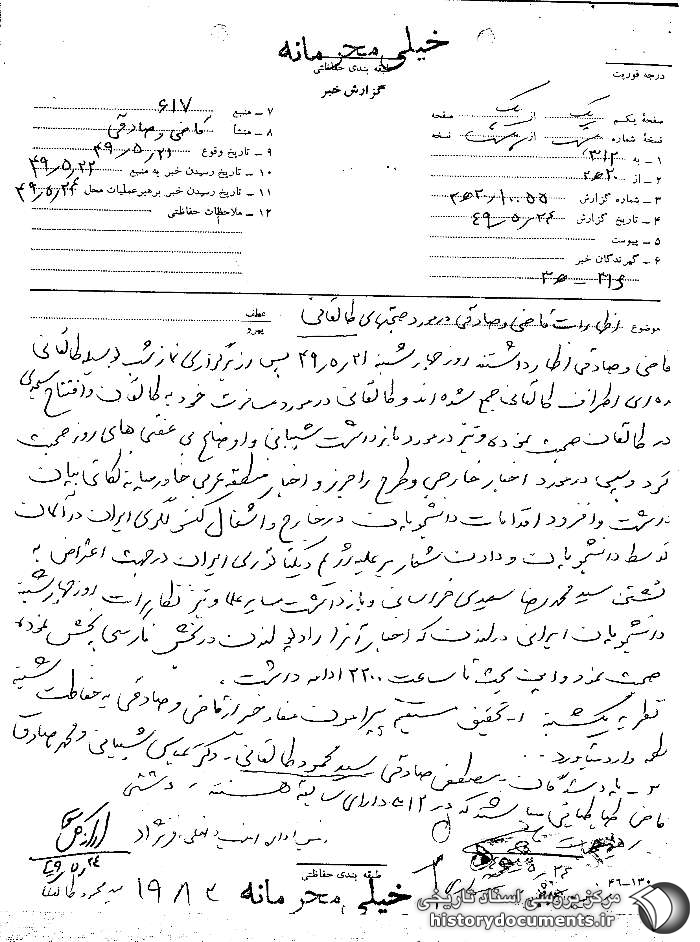 خیلی محرمانه
طبقه بندی حفاظتی
گزارش خبر
درجه فوریت
صفحهٔ یکم یک از یک صفحه
نسخهٔ شماره از نسخه
۱ – به ۳۱۲
۲ – از ۲۰ه۲
۳ – شماره گزارش
۴ – تاریخ گزارش ۴۹٫۵٫۲۴
۵ – پیوست
۶ – گیرندگان خبر
۷ – منبع ۶۱۷
۸ – منشأ قاضی و صادقی
۹ – تاریخ وقوع ۴۹٫۵٫۲۱
۱۰ – تاریخ رسیدن خبر به منبع ۴۹٫۵٫۲۲
۱۱ – تاریخ رسیدن خبر برهبر عملیات محل ۴۹٫۵٫۲۴
۱۲ – ملاحظات حفاظتی
موضوع اظهارات قاضی و صادقی در مورد صحبتهای طالقانی
عطف
پیرو
قاضی و صادقی اظهار داشتند روز چهارشنبه ۴۹٫۵٫۲۱ پس از برگزاری نماز شب بوسیله طالقانی
عده‌ای اطراف طالقانی جمع شده‌اند و طالقانی در مورد مسافرت خود به طالقان و افتتاح مسجدی
در طالقان صحبت نموده و نیز در مورد بازداشت شیبانی و اوضاع بی عفتی های روز صحبت
کرد و سپس در مورد اخبار خارجی و طرح راجرز و اخبار منطقه عربی خاورمیانه نکاتی بیان
داشت و افزود اقدامات دانشجویان در خارج و اشغال کنسولگری ایران در آلمان
توسط دانشجویان و دادن شعار بر علیه رژیم دیکتاتوری ایران در جهت اعتراض به
کشتن سید محمد رضا سعیدی خراسانی و بازداشت سایر علما و نیز تظاهرات روز چهارشنبه
دانشجویان ایرانی در لندن که اخبار آنرا رادیو لندن در بخش فارسی پخش نموده
صحبت نمود و این بحث تا ساعت ۲۲۰۰ ادامه داشت.
نظریه یکشنبه ۱– تحقیق مستقیم پیرامون مفاد خبر از قاضی و صادقی به حفاظت شنبه
لطمه وارد میآورد.
۲ – نامبردگان مصطفی صادقی سید محمود طالقانی – دکتر عباس شیبانی و محمد صادق
قاضی طباطبائی میباشند که در ۳۱۲ دارای سابقه هستند.
رئیس اداره امنیت داخلی
۴۹٫۵٫۲۴
طبقه بندی حفاظتی
خیلی محرمانه
۱۹۸۳
۴۶–۱۳۰
مرکز بررسی اسناد تاریخی
historydocuments.ir